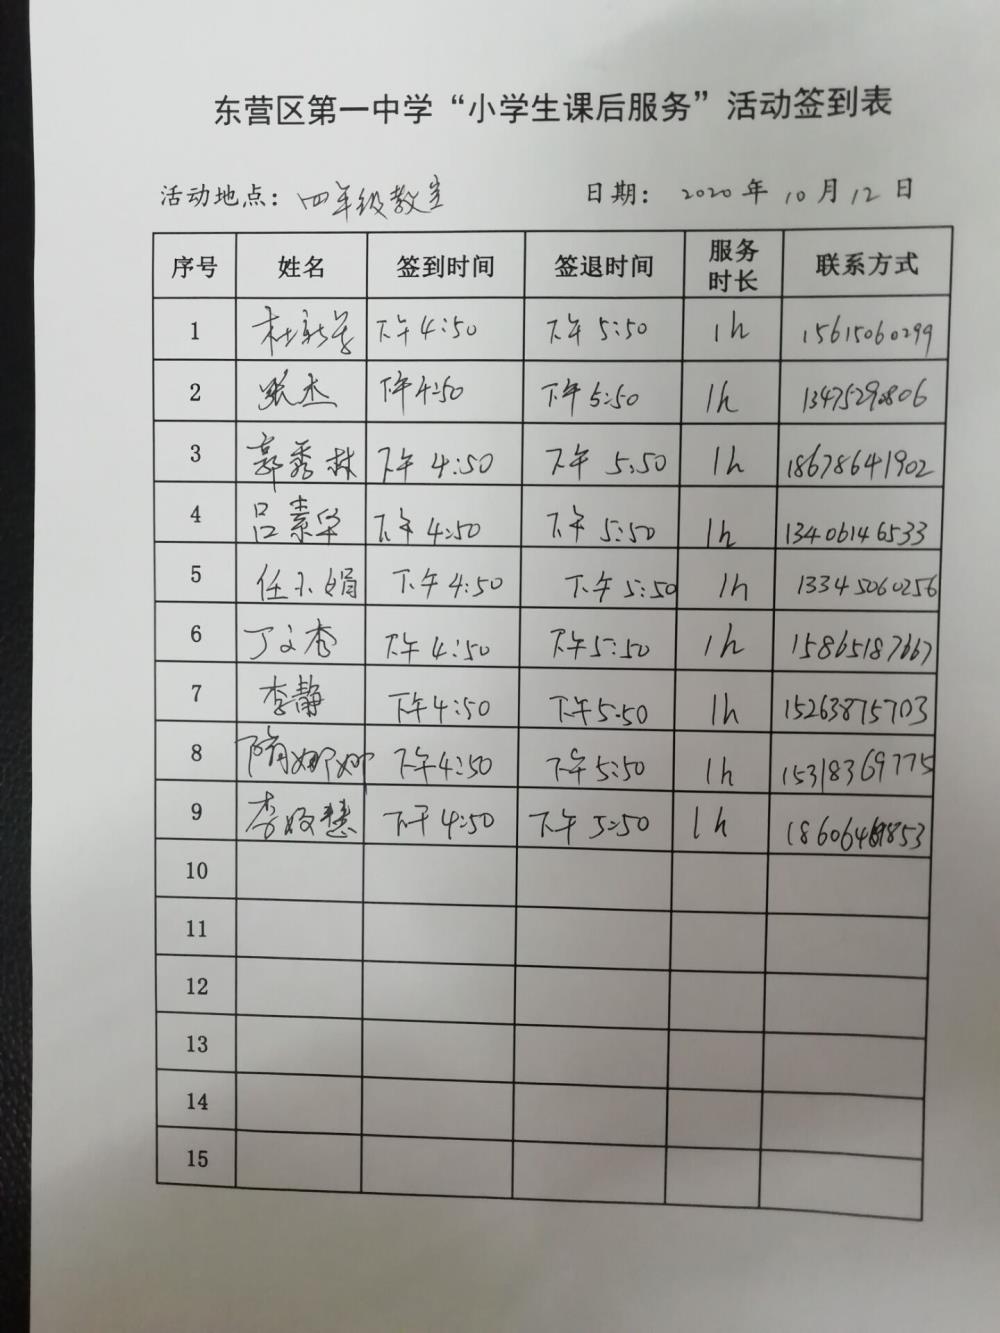 东营区第一中学“小学生课后服务”活动签到表
活动地点：四年级教室 日期：2020年10月12日
序号 姓名 签到时间 签退时间 服务时长 联系方式
1 杜新芳 下午4:50 下午5:50 1h 15615060299
2 张杰 下午4:50 下午5:50 1h 13475290806
3 郭秀林 下午4:50 下午5:50 1h 18678641902
4 吕素华 下午4:50 下午5:50 1h 13406146533
5 任小娟 下午4:50 下午5:50 1h 13345060256
6 丁文秀 下午4:50 下午5:50 1h 15865187667
7 李静 下午4:50 下午5:50 1h 15263875703
8 隋娜娜 下午4:50 下午5:50 1h 15318369775
9 李 慧 下午4:50 下午5:50 1h
10
11
12
13
14
15